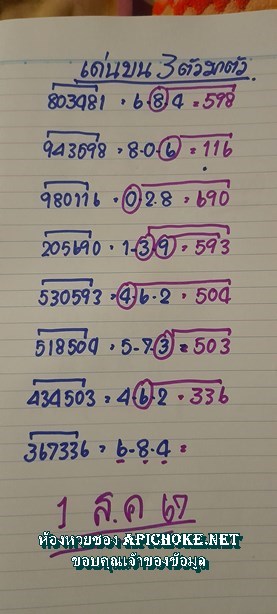 เด่นบน 3 ตัวมาตัว
803481 = 6-8-4 = 598
943598 = 8-0-6 = 116
980116 = 0-2-8 = 690
205690 = 1-3-9 = 593
530593 = 4-6-2 = 504
518504 = 5-7-3 = 503
434503 = 4-6-2 = 336
367336 = 6-8-4 =
1 ส.ค 67
ห้องหวยซอง APICHOKE.NET
ขอบคุณเจ้าของข้อมูล